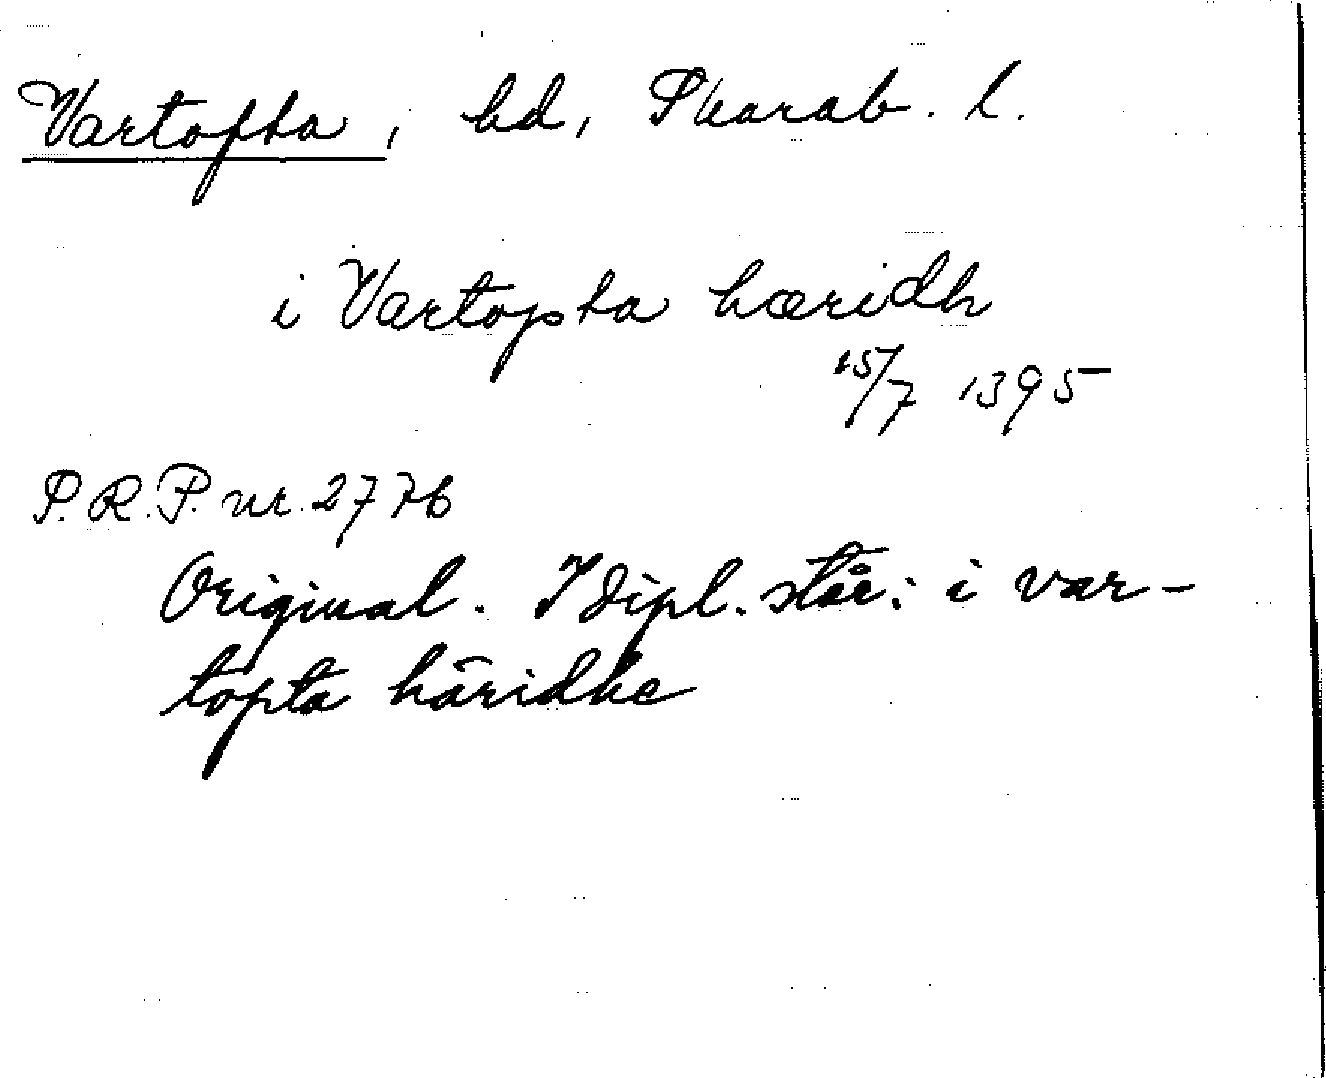 Vartofta, hd, Skarab. l.
i Vartopta hæridh
15/7 1395
S.R.P. nr. 2776
Original. I dipl. står: i var-
topta häridhe